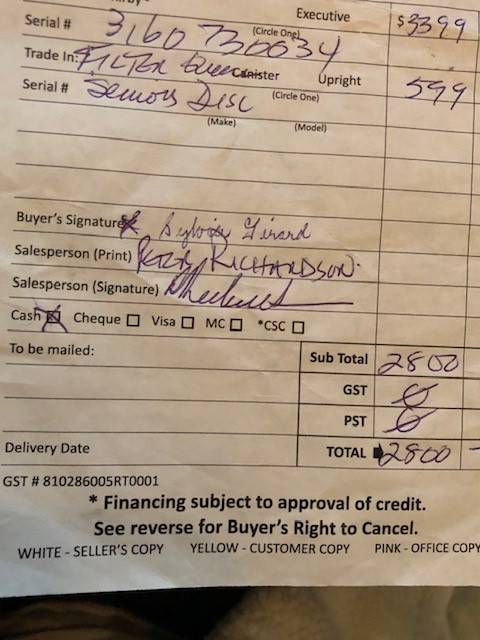 Executive $3399
Serial # 3160730034 (Circle One)
Trade In: FILTER Canister Upright 599
Serial # Seniors Disc (Circle One)
(Make) (Model)
Buyer's Signature X Sylvia Girard
Salesperson (Print) RICHARDSON
Salesperson (Signature)
Cash ☒ Cheque ☐ Visa ☐ MC ☐ *CSC ☐
To be mailed:
Sub Total 2800
GST 0
PST 0
Delivery Date
TOTAL 2800
GST # 810286005RT0001
* Financing subject to approval of credit.
See reverse for Buyer's Right to Cancel.
WHITE - SELLER'S COPY YELLOW - CUSTOMER COPY PINK - OFFICE COPY